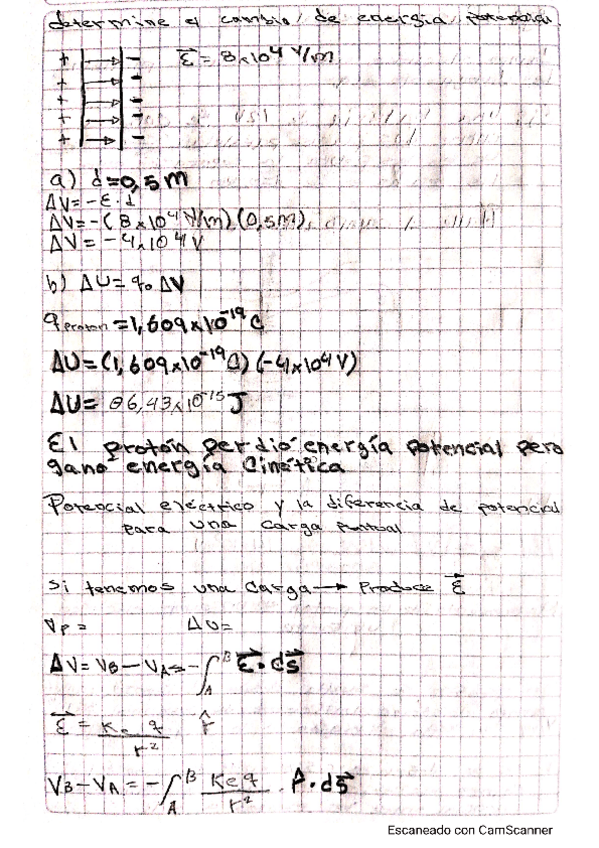 determine el cambio de energía potencial.
+ → - E⃗ = 8x10⁴ V/m
+ → -
+ → -
+ → -
+ → -
a) d=0,5m
ΔV= -E·d
ΔV= -(8x10⁴ V/m) (0,5m)
ΔV= -4x10⁴ V
b) ΔU= q₀ ΔV
q proton =1,609x10⁻¹⁹ C
ΔU=(1,609x10⁻¹⁹C) (-4x10⁴V)
ΔU= 6,43x10⁻¹⁵ J
El protón perdio energía potencial pero
gano energía Cinética
Potencial eléctrico y la diferencia de potencial
para una carga puntual
Si tenemos una Carga → Produce E⃗
Vp= ΔU=
ΔV= VB - VA = -∫ᴬᴮ E⃗·ds⃗
E⃗ = Ke q / r² r̂
VB-VA = -∫ᴬᴮ Ke q / r² r̂·ds⃗
Escaneado con CamScanner